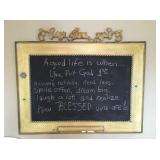 A good life is when...
You Put God 1st
assume nothing, need less,
smile often, dream big,
laugh a lot and realize
how BLESSED you are!